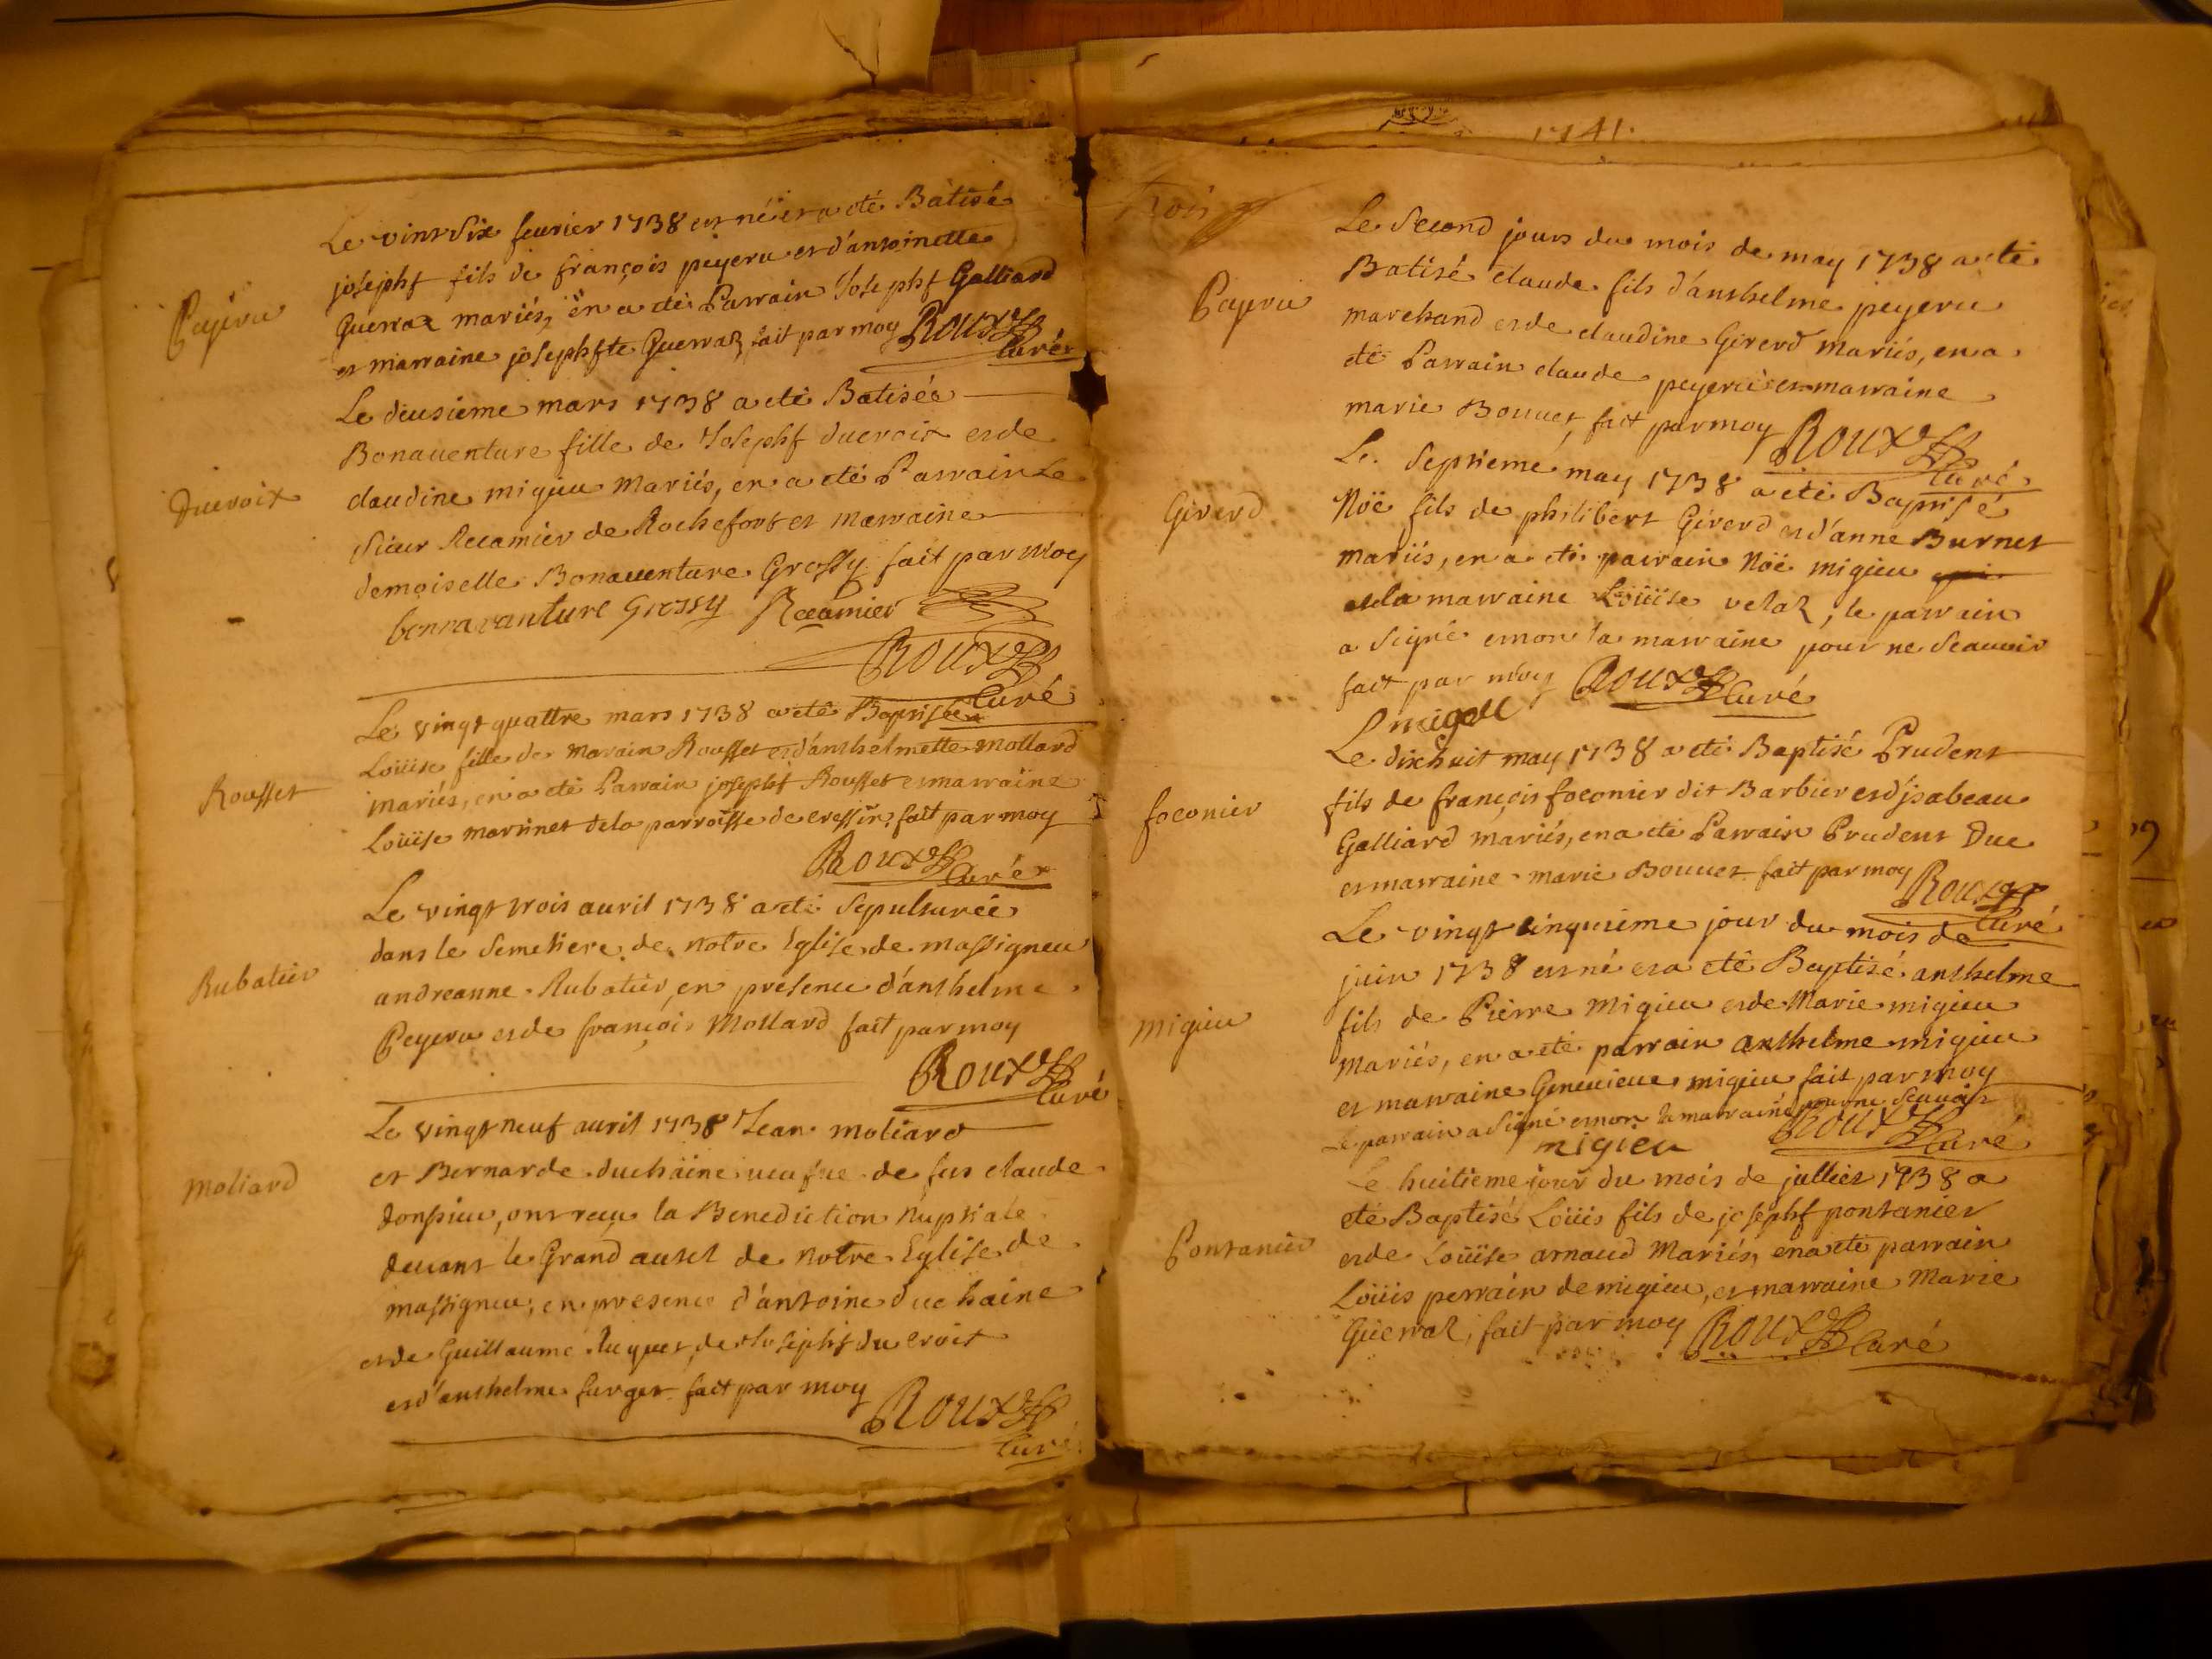 Le vint six feurier 1738 est né et a eté Batisé
josephf fils de françois peyeru et d'antoinette
Peyeru
Guerraz mariés, en a eté Parrain Josephf Galliard
et marraine josephfte Guerraz, fait par moy ROUX
Curé
Le deusieme mars 1738 a eté Batiséé
Bonauenture fille de Josephf ducroix et de
Ducroix
claudine migieu mariés, en a eté Parrain Le
sieur Recamier de Rochefort et marraine
demoiselle Bonauenture Grossy fait par moy
bonnavanture Grossy Recamier
ROUX
Curé
Le vingt quattre mars 1738 a eté Baptiséé
Loüise fille de marain Rousset et d'anthelmette mollard
Rousset
mariés, en a eté Parrain josephf Rousset et marraine
Loüise martinet de la parroisse de cressin, fait par moy
ROUX Curé
Le vingt trois auril 1738 a eté sepulturéé
dans le semetiere de notre Eglise de massigneu
Rubatier
andreanne Rubatier, en présence d'anthelme
Peyeru et de françois Mollard fait par moy
ROUX
Curé
Le vingt neuf auril 1738 Jean moliard
Moliard
et Bernarde duchaine ueufue de fus claude
donsieu, ont reçu la Benediction Nuptiale
deuant le Grand autel de Notre Eglise de
massigneu, en presence d'antoine duchaine
et de Guillaume luquet, de Josephf du croix
et d'anthelme furget fait par moy
ROUX
Curé
1741.
Le second jours du mois de may 1738 a eté
Batisé claude fils d'anthelme peyeru
Peyeru
marchand et de claudine Girerd mariés, en a
eté Parrain claude peyeru et marraine
marie Bouuet, fait par moy ROUX
Curé
Le septieme may 1738 a eté Baptisé
Girerd
Nöe fils de philibert Girerd et d'anne Burnet
mariés, en a eté parrain Nöe migieu
et la marraine Loüise velaz, le parrain
a signé et non la marraine pour ne scauoir
fait par moy ROUX Curé
Le dixhuit may 1738 a eté Baptisé Prudent
foconier
fils de françois foconier dit Barbier et d'jsabeau
Galliard mariés, en a eté Parrain Prudent Duc
et marraine marie Bouuet fait par moy ROUX
Curé
Le vingt cinquieme jour du mois de
juin 1738 est né et a eté Baptisé anthelme
migieu
fils de Pierre Migieu et de Marie migieu
Mariés, en a eté parrain anthelme migieu
et marraine Geneuieue migieu fait par moy
Le parrain a signé et non la marraine pour ne scauoir
migieu ROUX Curé
Le huitieme jour du mois de jullier 1738 a
eté Baptisé Loüis fils de josephf pontanier
Pontanier
et de Loüise arnaud Mariés, en a eté parrain
Loüis perrain de migieu, et marraine Marie
Guerraz, fait par moy ROUX Curé